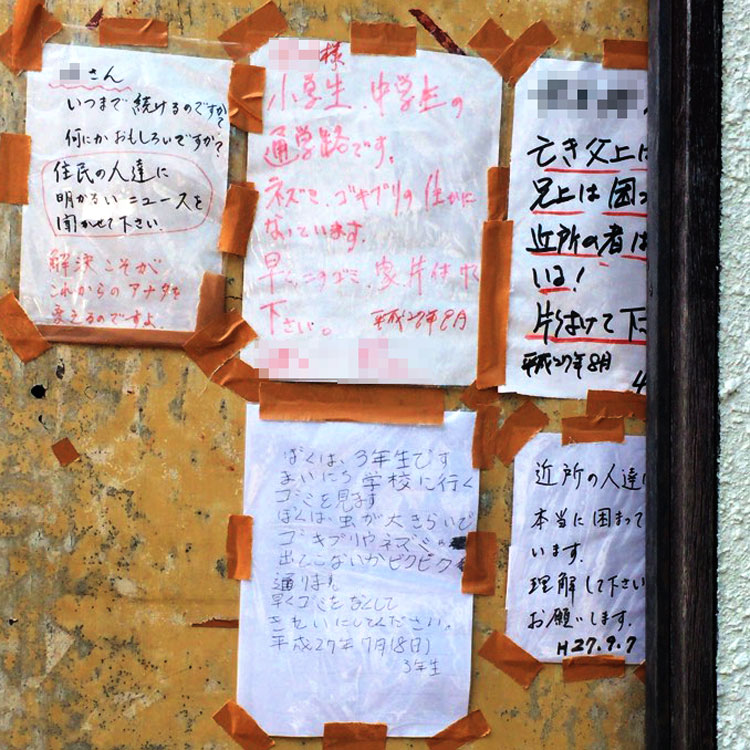 さん
いつまで続けるのですか?
何にがおもしろいですか?
住民の人達に
明かるいニュースを
聞かせて下さい.
解決こそが
これからのアナタを
変えるのですよ
様
小学生、中学生の
通学路です。
ネズミ、ゴキブリの住かに
なっています.
早くこのゴミ、家、片付けて
下さい。 平成27年9月
亡き父上は
兄上は困っ
近所の者は
いる!
片ずけて下
平成27年8月
ぼくは、3年生です
まいにち学校に行く
ゴミを見ます
ぼくは、虫が大きらいで
ゴキブリやネズミ
出てこないかビクビク
通ります
早くゴミをなくして
きれいにしてください。
平成27年7月18日
3年生
近所の人達は
本当に困って
います.
理解して下さい
お願いします.
H27.9.7